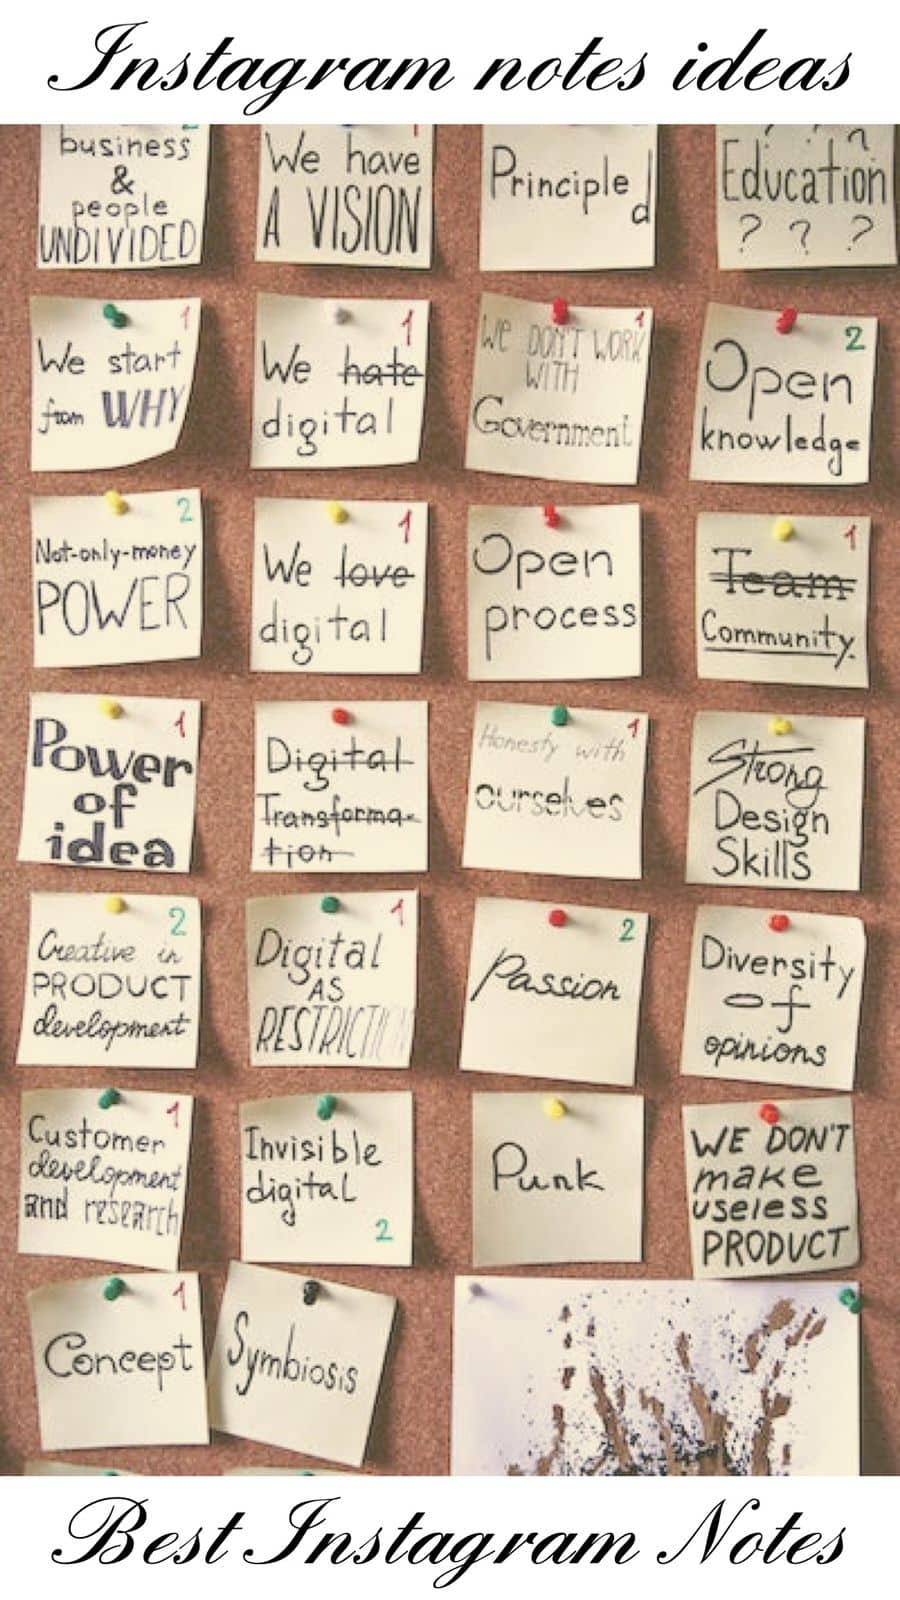 Instagram notes ideas
2
business
&
people
UNDIVIDED
1
We have
A VISION
Principle
d
? ? ?
Education
? ? ?
1
We start
from WHY
1
We hate
digital
1
We DON'T WORK
WITH
Government
2
Open
knowledge
2
Not-only-money
POWER
1
We love
digital
Open
process
1
Team
Community
1
Power
of
idea
Digital
Transforma-
tion
1
Honesty with
ourselves
Strong
Design
Skills
2
Creative in
PRODUCT
development
1
Digital
AS
RESTRICTION
2
Passion
Diversity
of
opinions
1
Customer
development
and research
Invisible
digital
2
Punk
WE DON'T
make
useless
PRODUCT
1
Concept
Symbiosis
Best Instagram Notes